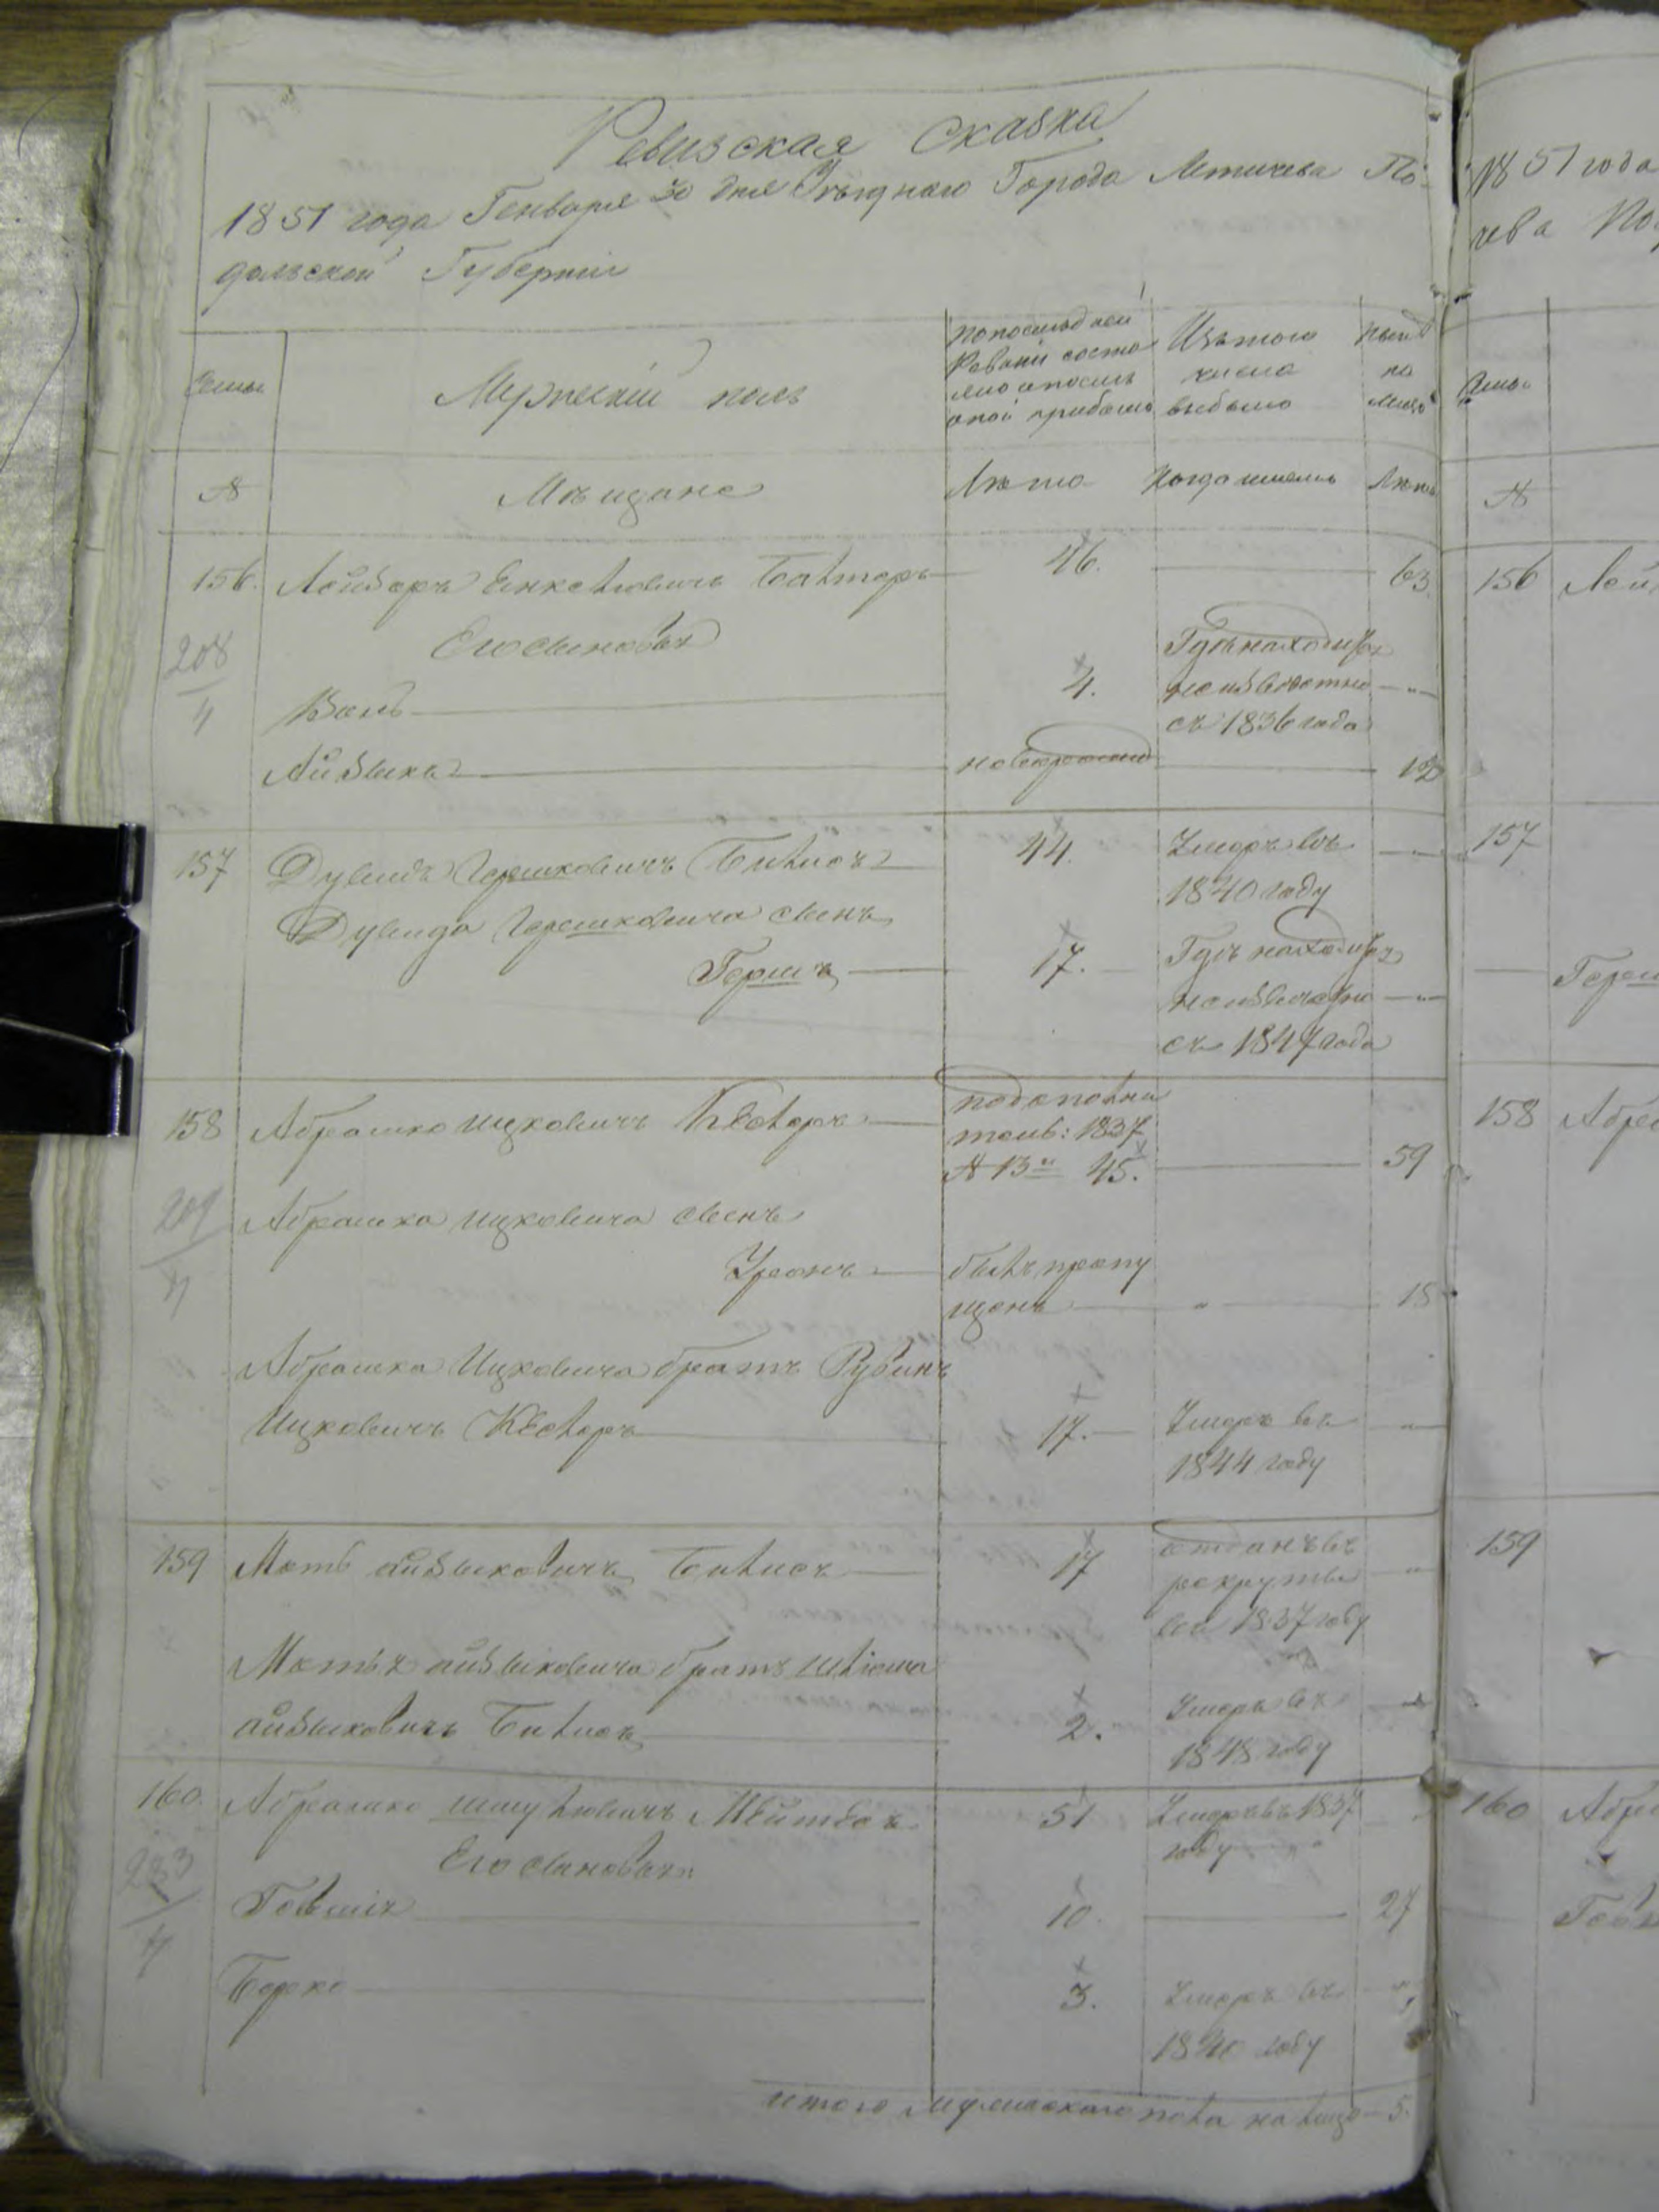 Ревизская Сказка
1851 года Генваря 30 дня Уѣзднаго Города Летичева По-
дольской Губерніи
Семьи
Мужескій полъ
По последней
Ревизіи состо
яло и послѣ
оной прибыло
Изъ того
числа
выбыло
Нынѣ
на
лицо
№
Мѣщане
Лѣта
Когда именно
Лѣта
156. Лейзоръ Янкелювичъ 46. 63.
208
4
Его сыновья
4. Гдѣ находится
неизвѣстно
съ 1836 года
Айзыкъ новорожден 12
157 Дувидъ Гершковичъ 44. Умеръ въ
1840 году
Дувида Гершковича сынъ
Гершъ 17. Гдѣ находится
неизвѣстно
съ 1847 года
158 Абрашко Ицковичъ КЕслеръ по дополни
тель: 1837
№ 13 45. 59
209
4
Абрашка Ицковича сынъ
былъ пропу
щенъ 18
Абрашка Ицковича братъ Рувинъ
Ицковичъ Кеслеръ 17. Умеръ въ
1844 году
159 Моть Айзыковичъ 17 отданъ въ
рекруты
въ 1837 году
Мотья Айзыковича братъ Шлiома
Айзыковичъ 2. Умеръ въ
1848 году
160. Абрашко Шмулювичъ 51 Умеръ въ 1837
году
Его сыновья
4
10. 27
Берко 3. Умеръ въ
1840 году
итого мужескаго пола на лицо 5.
1851 года
чева По
№
156 Лей
157
Герш
158 Абра
159
160 Абра